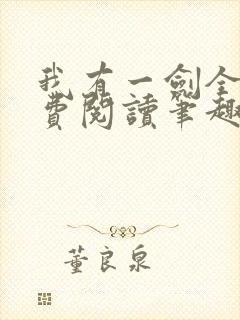 我有一劍全
費閱讀筆趣
董良泉